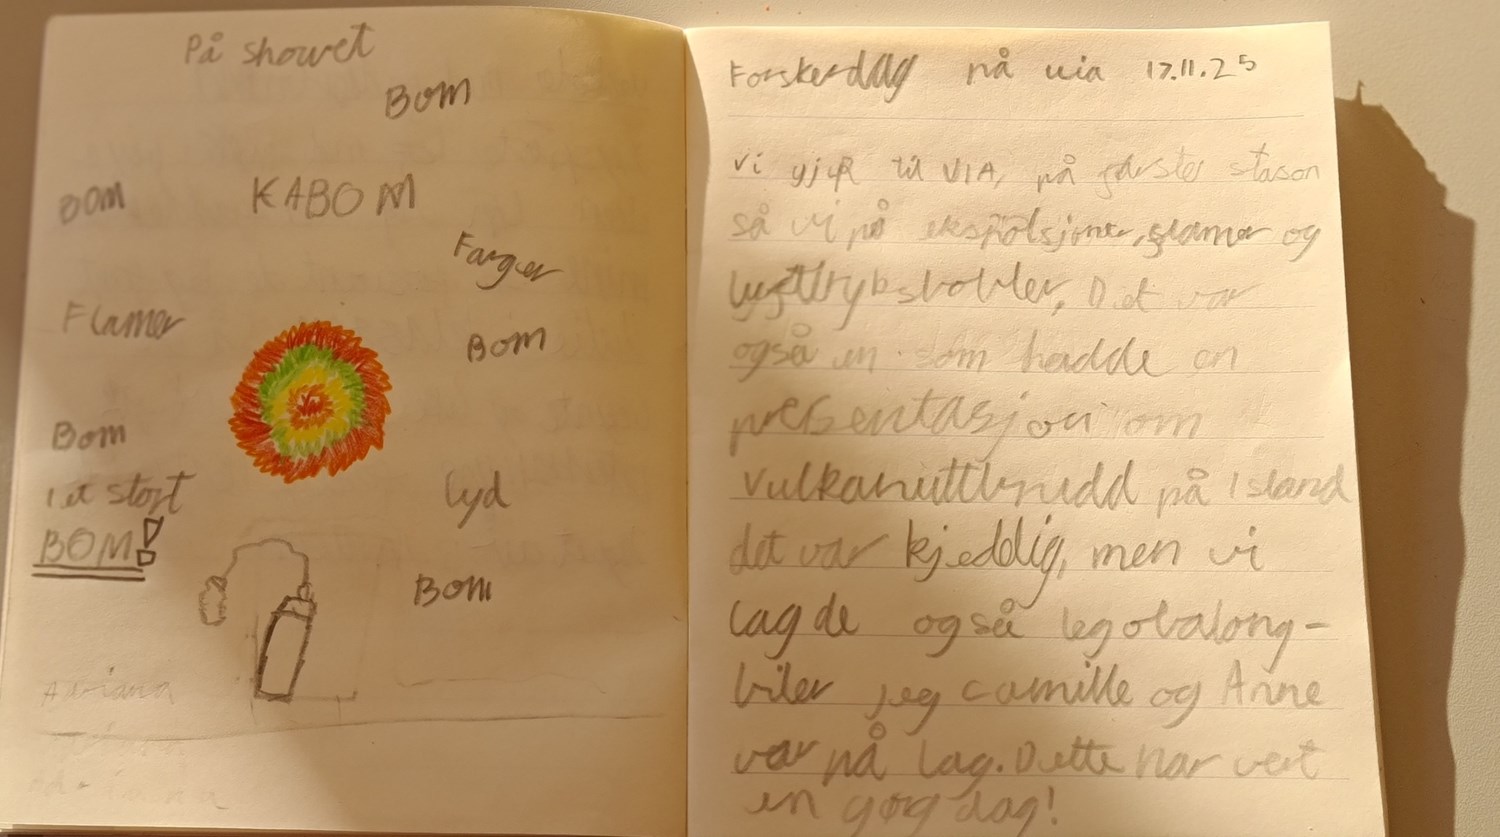 På showet
BOM
BOM
KABOM
Farger
Flamer
BOM
Bom
1 et stort
lyd
BOM!
Bom
Adriana
Forskerdag på via 17.11.25
Vi gjik til VIA, på første stason
så vi på ekspolsjoner, flamer og
lufttryksbobler. Det var
også en som hadde en
presentasjon om
vulkanuttbrudd på Island
det var kjeddlig, men vi
lagde også legobalong-
biler jeg camille og Anne
var på lag. Dette har vert
en gøy dag!